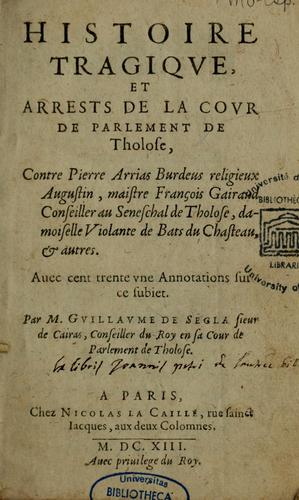 HISTOIRE
TRAGIQVE,
ET
ARRESTS DE LA COVR
DE PARLEMENT DE
Tholose,
Contre Pierre Arrias Burdeus religieux
Augustin, maistre François Gairaud
Conseiller au Seneschal de Tholose, da-
moiselle Violante de Bats du Chasteau,
& autres.
Auec cent trente vne Annotations sur
ce subiet.
Par M. GVILLAVME DE SEGLA sieur
de Cairas, Conseiller du Roy en sa Cour de
Parlement de Tholose.
Ex libris Joannis
A PARIS,
Chez NICOLAS LA CAILLÉ, rue sainct
Iacques, aux deux Colomnes.
M. DC. XIII.
Auec priuilege du Roy.
BIBLIOTHÈ
LIBRARI
University of
Universitas
BIBLIOTHECA